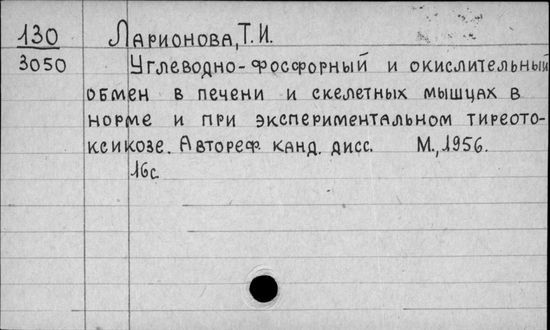 130 Ларионова, Т. И.
3050 Углеводно-фосфорный и окислительный
обмен в печени и скелетных мышцах в
норме и при экспериментальном тиреото-
ксикозе. Автореф. канд. дисс. М., 1956.
16с.